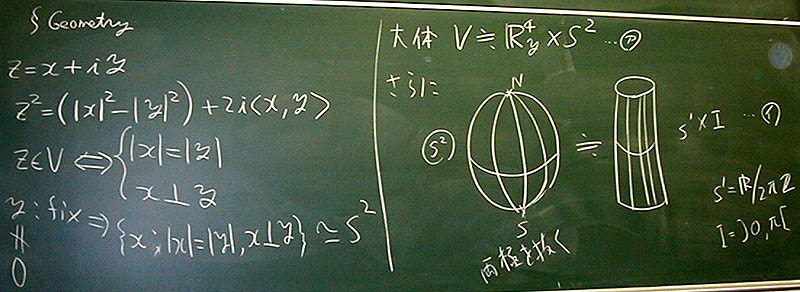 § Geometry
z = x + iy
z² = (|x|² - |y|²) + 2i<x, y>
z ∈ V ⇔ { |x| = |y|
x ⊥ y
y : fix ⇒ {x ; |x| = |y|, x ⊥ y} ≃ S²
≠
0
大体 V ≒ ℝ⁴_y × S² …ⓟ
さらに
N
S²
S
両極を抜く
≒
S' × I …
S' = ℝ/2πℤ
I = ]0, π[